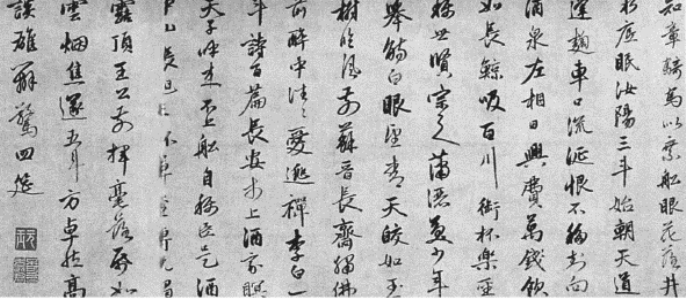 知章騎馬似乘船眼花落井
水底眠汝陽三斗始朝天道
逢麴車口流涎恨不移封向
酒泉左相日興費萬錢飲
如長鯨吸百川銜杯樂聖
稱世賢宗之瀟灑美少年
舉觴白眼望青天皎如玉
樹臨風前蘇晉長齋繡佛
前醉中往往愛逃禪李白一
斗詩百篇長安市上酒家眠
天子呼來不上船自稱臣是酒
露頂王公前揮毫落紙如
雲烟焦遂五斗方卓然高
談雄辯驚四筵